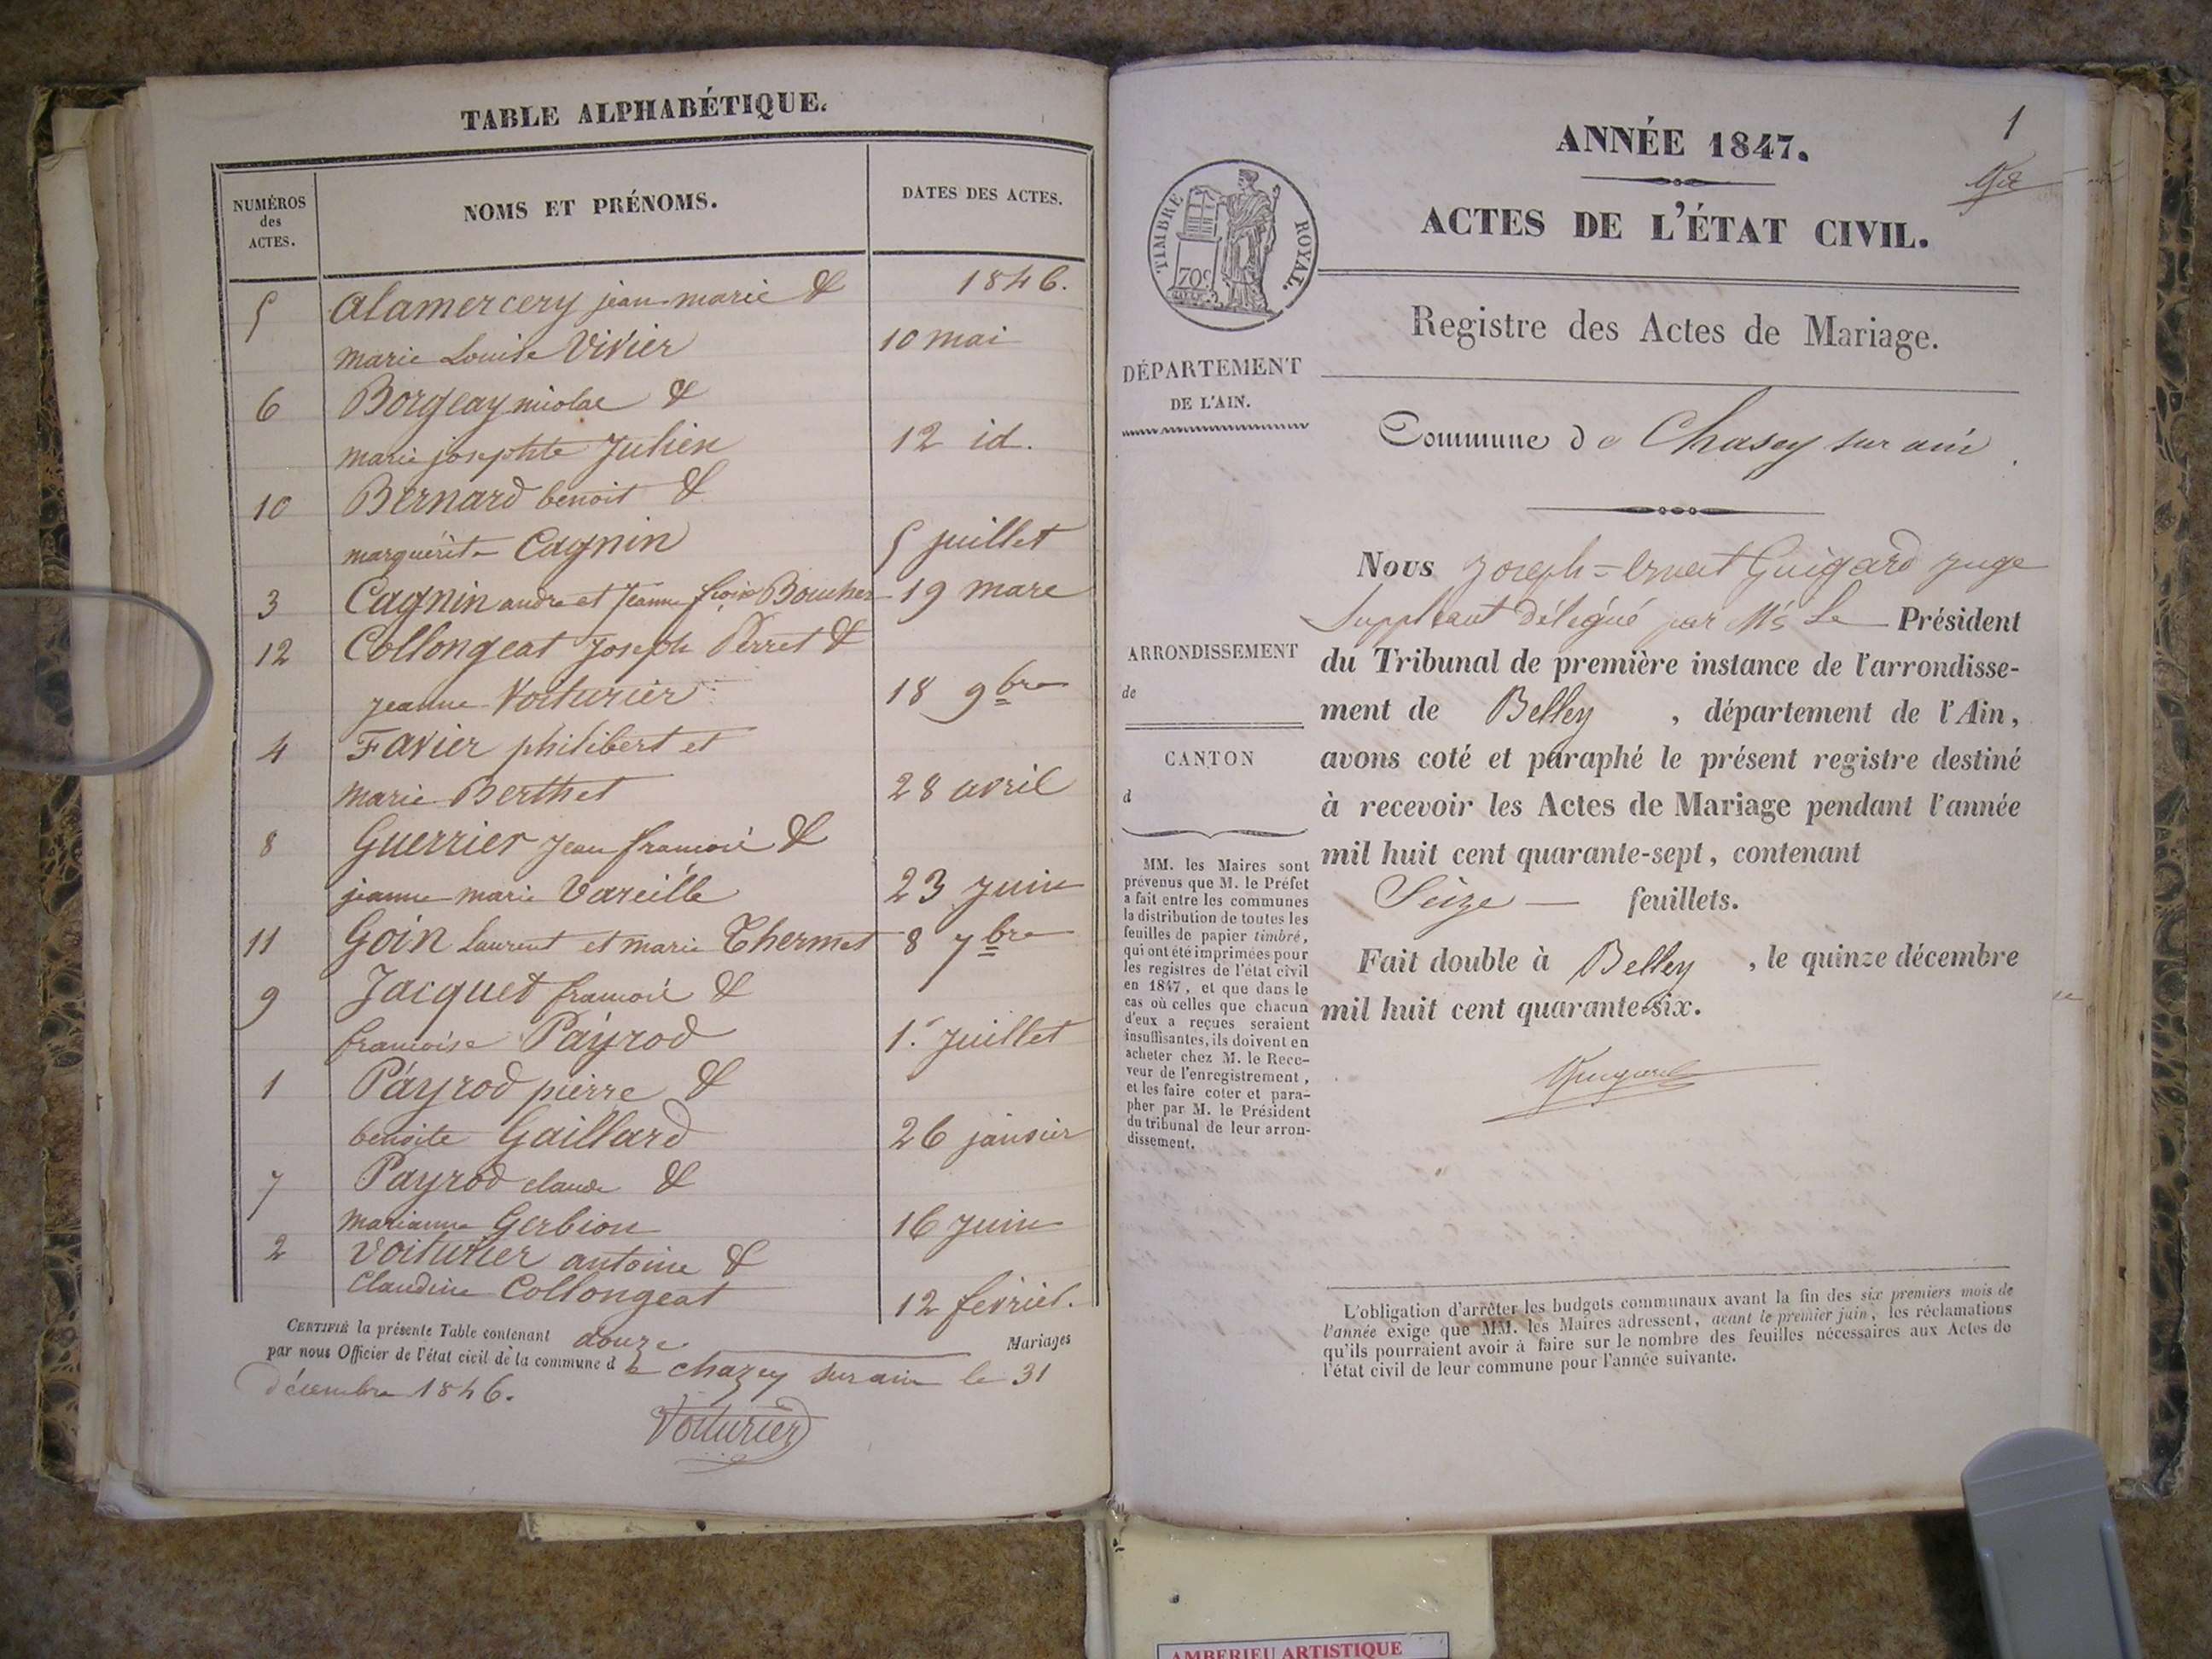 TABLE ALPHABÉTIQUE.
NUMÉROS des ACTES.
NOMS ET PRÉNOMS.
DATES DES ACTES.
1846.
5 Alamercery jean-marie &
marie Louise Vivier 10 mai
6 Borgeay nicolas &
marie josephte Julien 12 id.
10 Bernard benoit &
marguérite Cagnin 5 juillet
3 Cagnin andre et Jeanne fçoise Boucher 19 mars
12 Collongeat Joseph Perret &
jeanne Voiturier 18 9bre
4 Favier philibert et
marie Berthet 28 avril
8 Guerrier Jean françois &
jeanne marie Vareille 23 juin
11 Goin Laurent et marie Thermet 8 7bre
9 Jacquet françois &
françoise Payrod 1r juillet
1 Payrod pierre &
benoite Gaillard 26 janvier
7 Payrod claude &
marianne Gerbion 16 juin
2 Voiturier antoine &
Claudine Collongeat 12 février.
CERTIFIÉ la présente Table contenant douze Mariages
par nous Officier de l'état civil de la commune de chazey sur ain le 31
décembre 1846.
Voiturier
1
ANNÉE 1847.
ACTES DE L'ÉTAT CIVIL.
TIMBRE ROYAL.
70c
Registre des Actes de Mariage.
DÉPARTEMENT
DE L'AIN.
Commune de Chasey sur ain
Nous Joseph-Ernest Guigard juge
Suppléant délégué par Mr Le Président
du Tribunal de première instance de l'arrondisse-
ment de Belley, département de l'Ain,
avons coté et paraphé le présent registre destiné
à recevoir les Actes de Mariage pendant l'année
mil huit cent quarante-sept, contenant
Seize — feuillets.
Fait double à Belley, le quinze décembre
mil huit cent quarante-six.
Guigard
ARRONDISSEMENT
de
CANTON
d
MM. les Maires sont
prévenus que M. le Préfet
a fait entre les communes
la distribution de toutes les
feuilles de papier timbré,
qui ont été imprimées pour
les registres de l'état civil
en 1847, et que dans le
cas où celles que chacun
d'eux a reçues seraient
insuffisantes, ils doivent en
acheter chez M. le Rece-
veur de l'enregistrement,
et les faire coter et para-
pher par M. le Président
du tribunal de leur arron-
dissement.
L'obligation d'arrêter les budgets communaux avant la fin des six premiers mois de
l'année exige que MM. les Maires adressent, avant le premier juin, les réclamations
qu'ils pourraient avoir à faire sur le nombre des feuilles nécessaires aux Actes de
l'état civil de leur commune pour l'année suivante.
AMBERIEU ARTISTIQUE